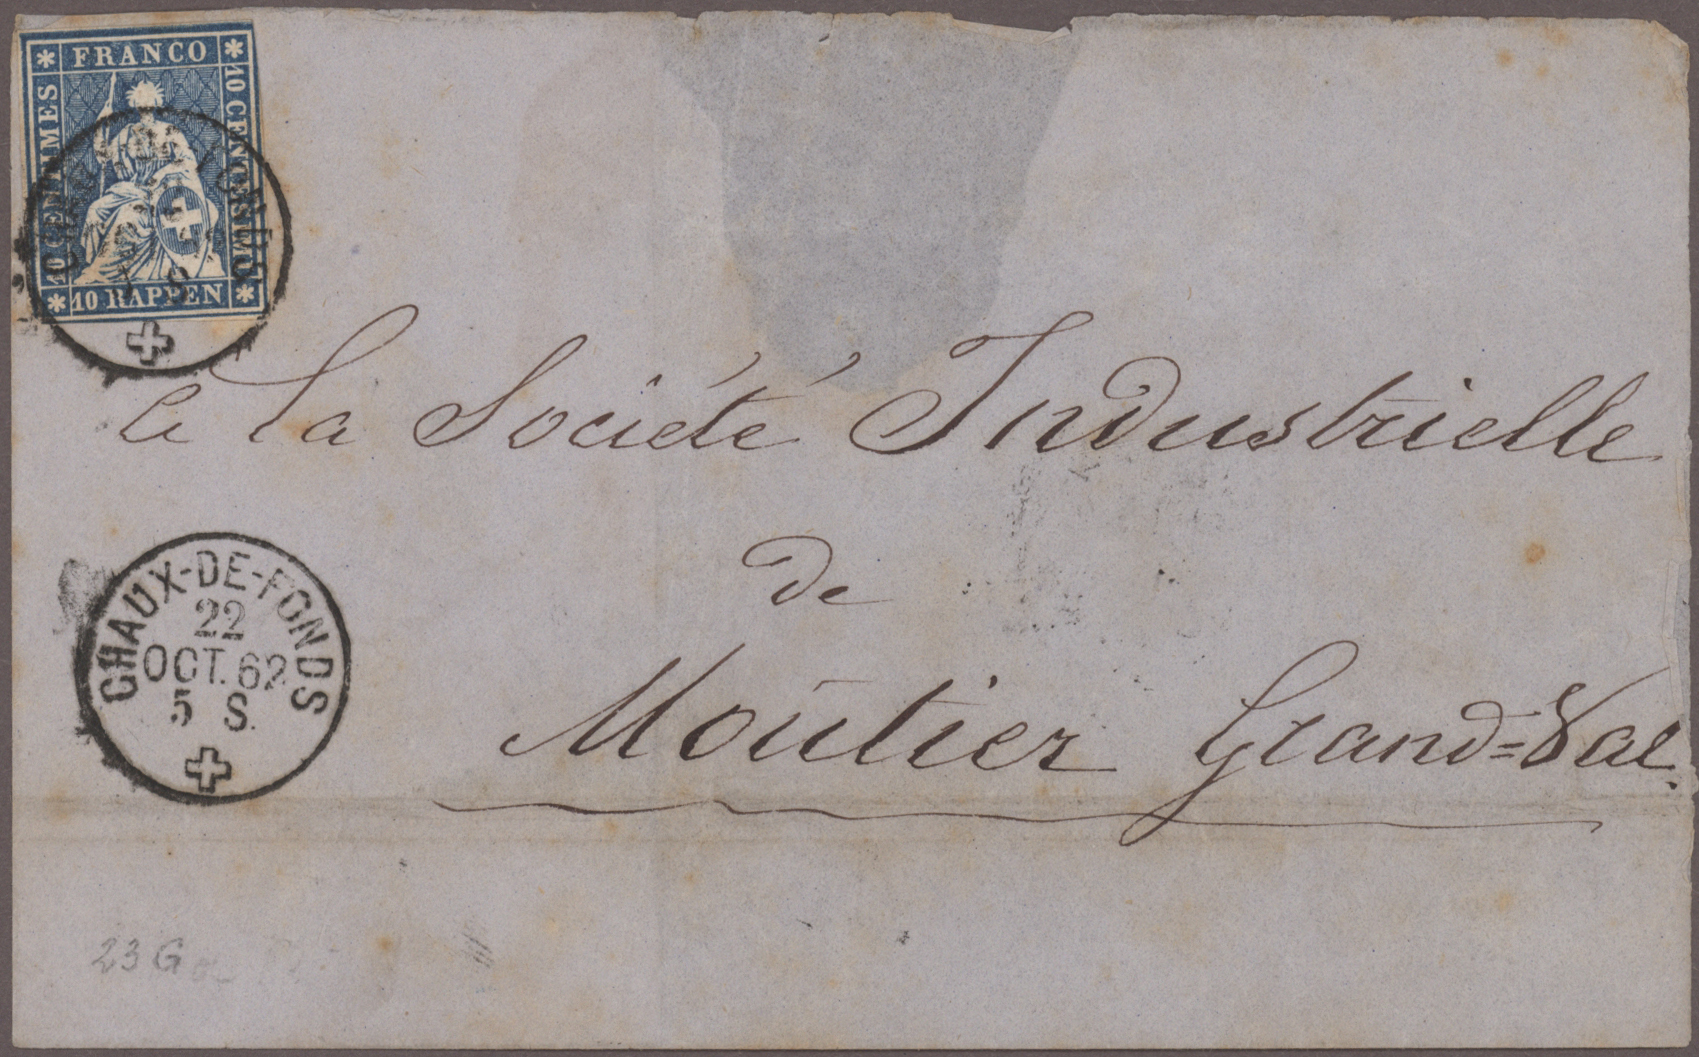 FRANCO
10 CENTIMES
10 CENTESIMI
10 RAPPEN
à la Société Industrielle
de
CHAUX-DE-FONDS
22
OCT. 62
5 S.
Moutier Grand=Val.
23 G